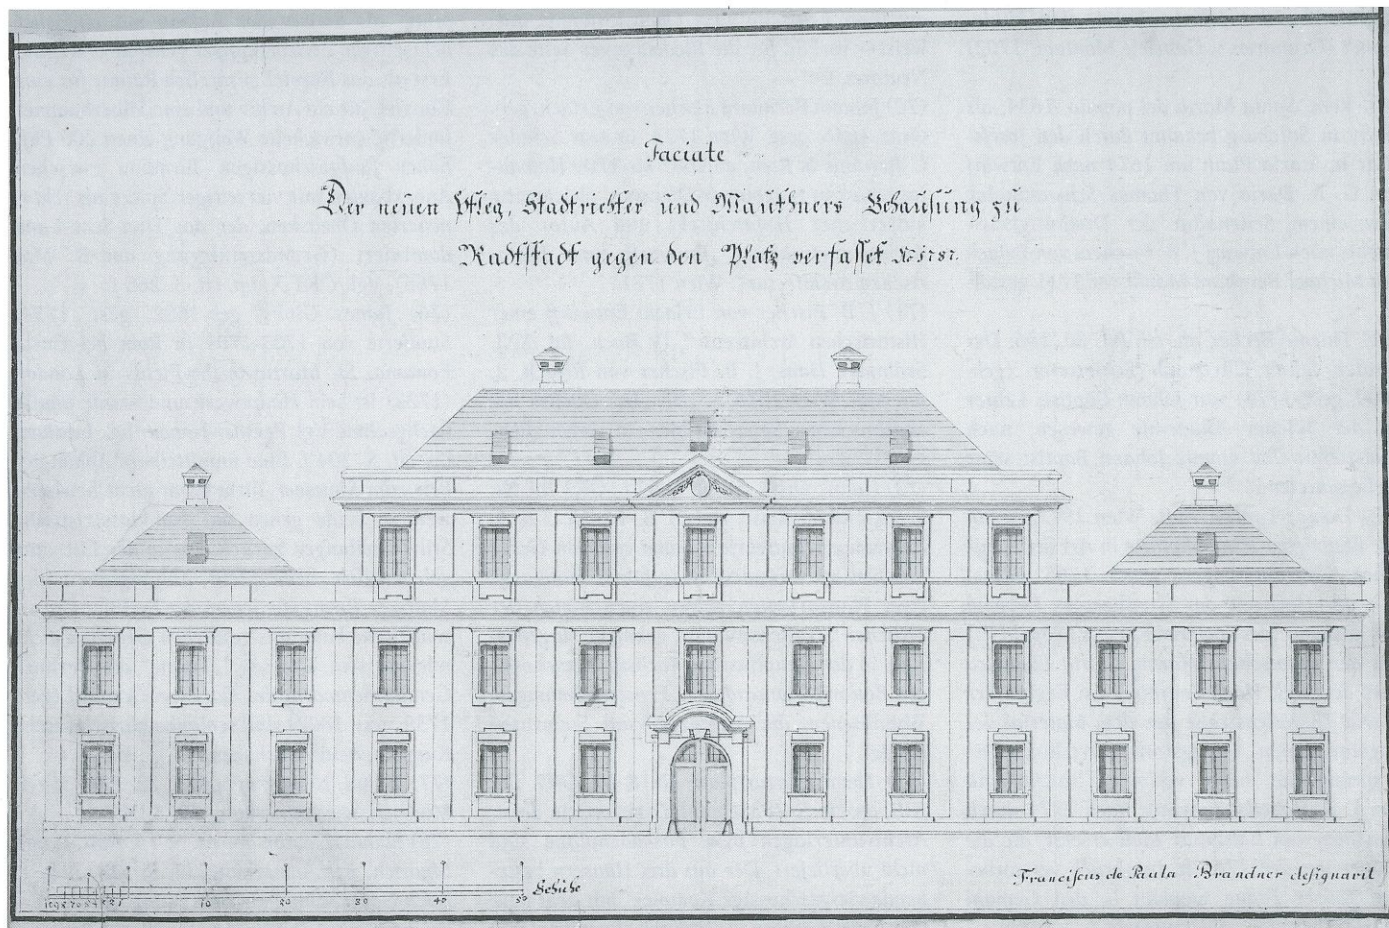 Faciate
Der neuen Pfleg, Stadtrichter und Mauthners Behausung zu
Radtstadt gegen den Platz verfasset
10 20 30 40 50 Schuhe
Franciscus de Paula Brandner designavit